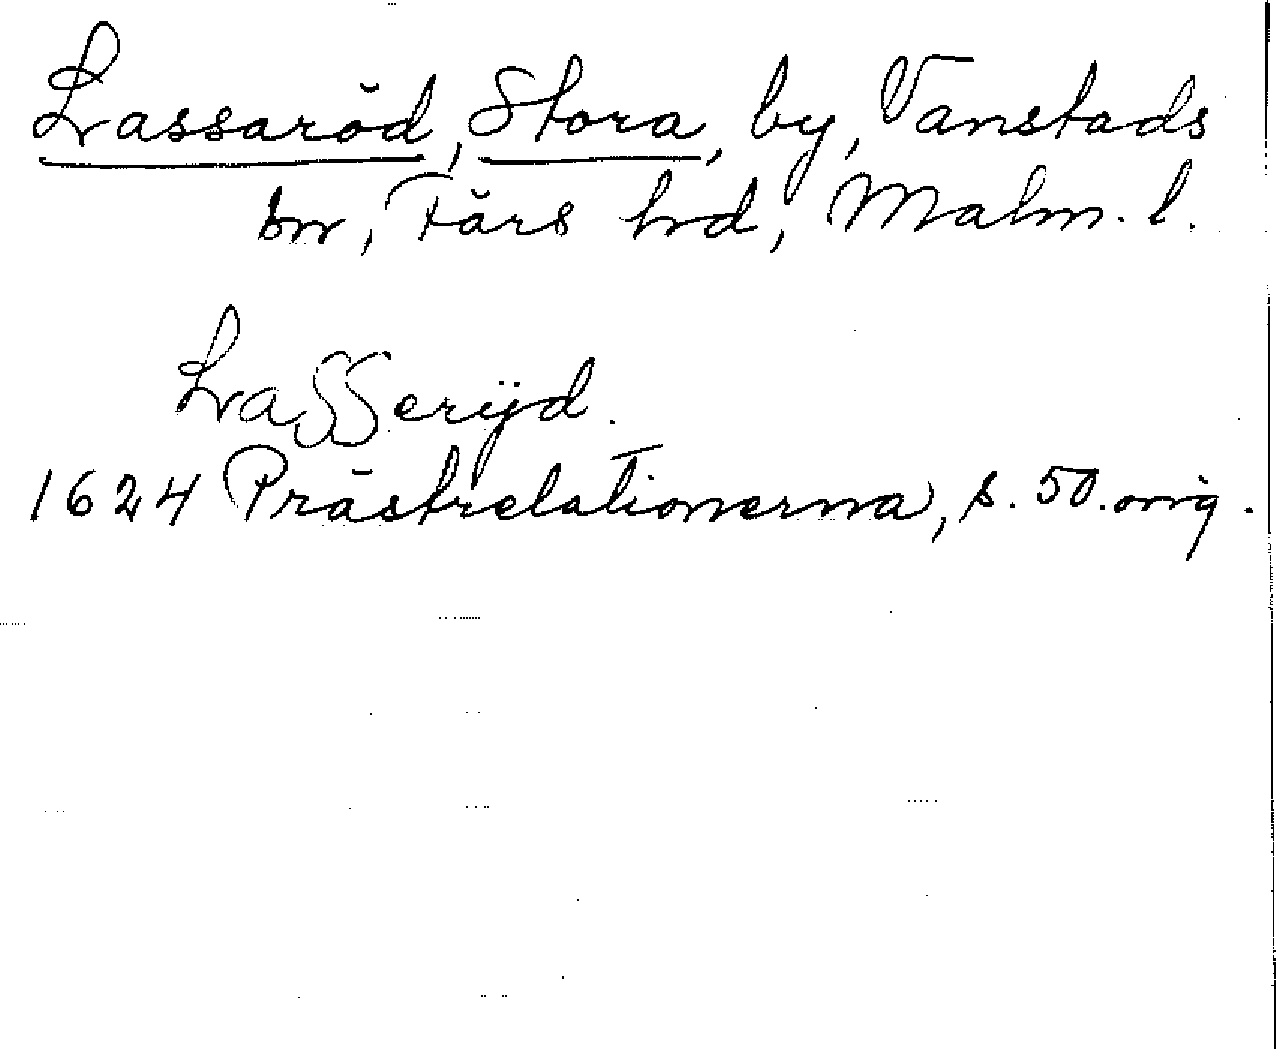 Lassaröd, Stora, by, Vanstads
sn, Färs hd, Malm. l.
Lasserÿd.
1624 Prästrelationerna, s. 50. orig.